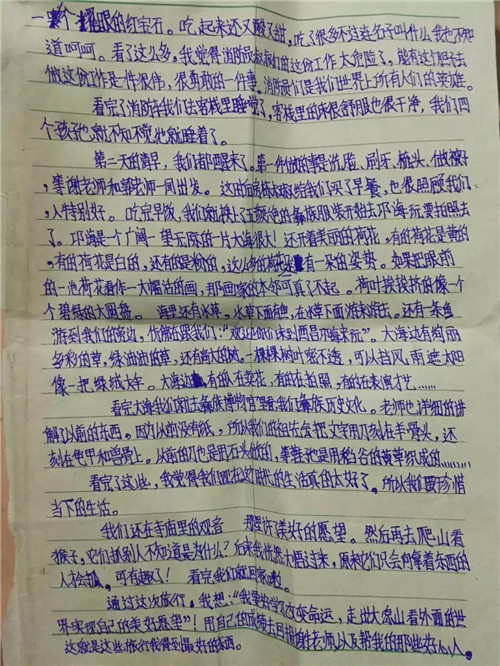 一个个耀眼的红宝石。吃起来还又酸又甜，吃了很多不过这名子叫什么我也不知
道呵呵。看了这么多，我觉得消防员叔叔们的这份工作太危险了，能有这们勇去
做这份工作是一件很伟，很勇敢的一件事。消防员们是我们世界上所有人们的英雄。
看完了消防车我们去客栈里睡觉了，客栈里的床很舒服也很干净，我们四
个孩子也就不知不觉也就睡着了。
第二天的清早，我们都醒来了。第一件做的事是洗脸、刷牙、梳头、做被子
，等谢老师和郭老师一同出发。这时候杨叔叔给我们买了早餐，也很照顾我们，
人特别好。吃完早饭，我们就换上了五颜六色的彝族服装开始去邛海玩耍拍照去
了。邛海是一个广阔一望无际的一片大海很大！还开着美丽的荷花，有的荷花是黄的
，有的荷花是白的，还有的是粉的，这么多的荷花一朵有一朵的姿势。如果把眼前
的一池荷花看作一大幅活的画，那画家的本领可真了不起。荷叶挨挨挤挤的像一个
个碧绿的大圆盘。海里还有水草，水草下面有鱼，在水草下面游来游去。还有一条鱼
游到我们的旁边，仿佛在跟我们："欢迎你们来到西昌邛海来玩"。大海边有绚丽
多彩的草，绿油油的草，还有高大的树，一棵棵树叶密不透，可以挡风、雨，遮太阳
像一把绿绒大伞。大海边有的人在卖花，有的在拍照，有的在表演才艺……
看完大海我们又去彝族博物馆里看我们彝族历史文化。老师也详细的讲
解了以前的东西。因为以前没有纸，所以我们的祖先会把文字用刀刻在羊骨头，还
刻在龟甲和兽骨上。从前的刀也是用石头做的，草鞋也是用稻谷的黄草织成的……
看完了这些，我觉得我们现在这个时代的生活真的太好了。所以我们要珍惜
当下的生活。
我们还在寺庙里的观音 那里许了美好的愿望。然后再去爬山看
猴子，它们抓别人不知道是为什么？后来我恍然大悟过来，原来它们只会向拿着东西的
人才会抓，可有趣了！看完我们就回家啦。
通过这次旅行，我想："我要好好学习改变命运，走出大凉山看外面的世
界实现自己的美好愿望"！用自己的成绩去回报谢老师以及帮我的那些好心人。
这就是这些旅行我得到最好的东西。